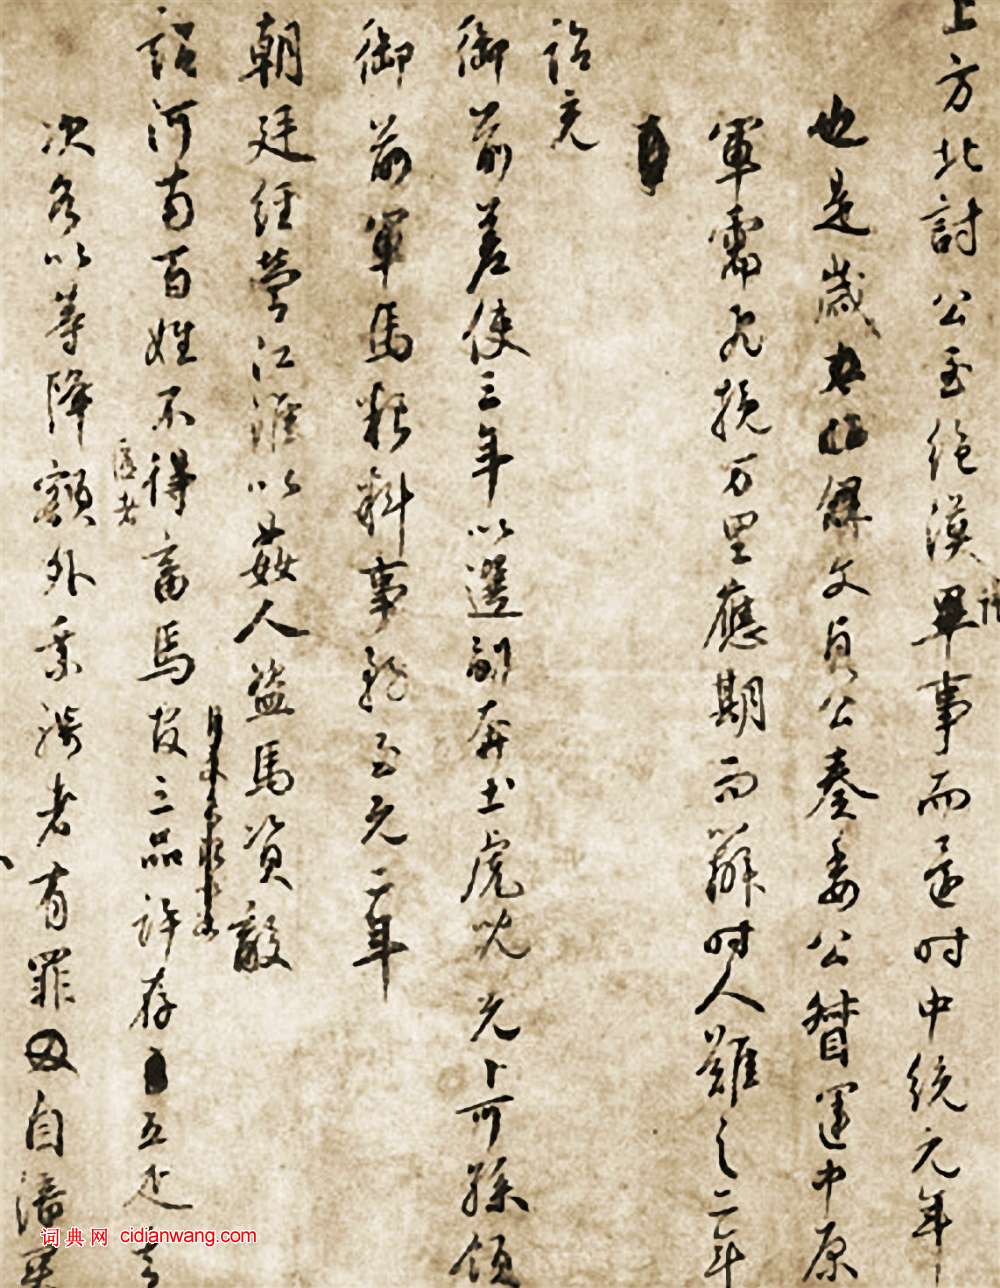 上方北討公至絶漠畢事而還时中統元年
也是歲文貞公奏委公督運中原
軍需凡挽万里應期而辦时人難之二年
詔充
御前差使三年以選副奔土虎吠元卜可孫領
御前軍馬粮料事至元二年
朝廷經營江淮以姦人盜馬資敵
詔河南百姓不得畜馬官三品許存五疋
匿者
次各以等降額外乗騎者有罪自潘
词典网 cidianwang.com